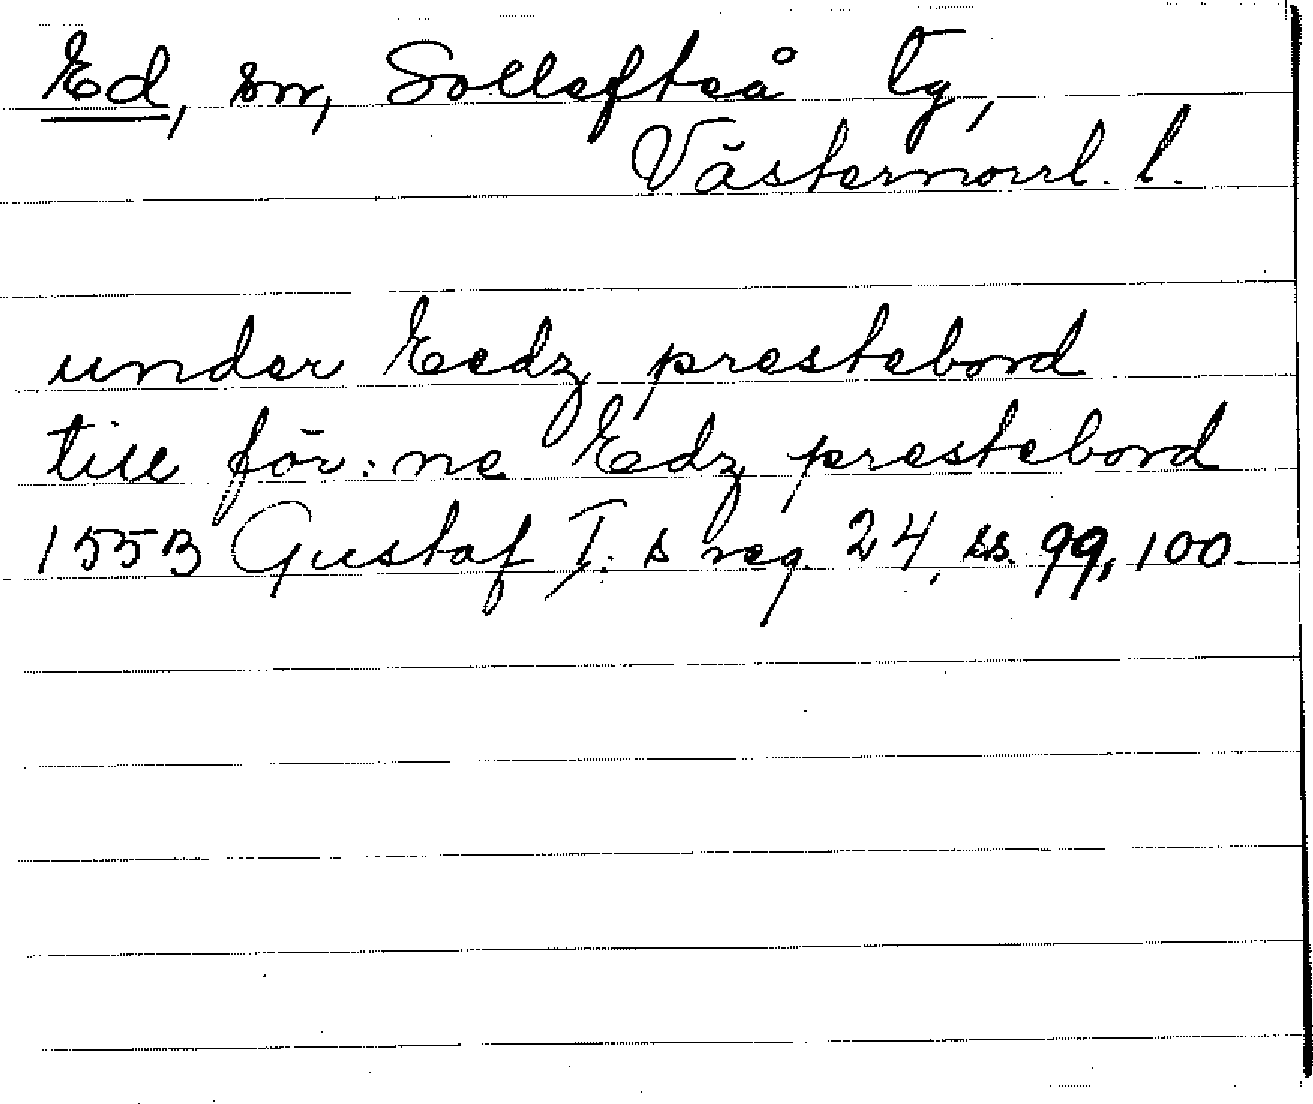 Ed, sn, Sollefteå tg,
Västernorrl. l.
under Eedz prestebord
till för:ne Edz prestebord
1553 Gustaf I:s reg. 24, ss. 99, 100